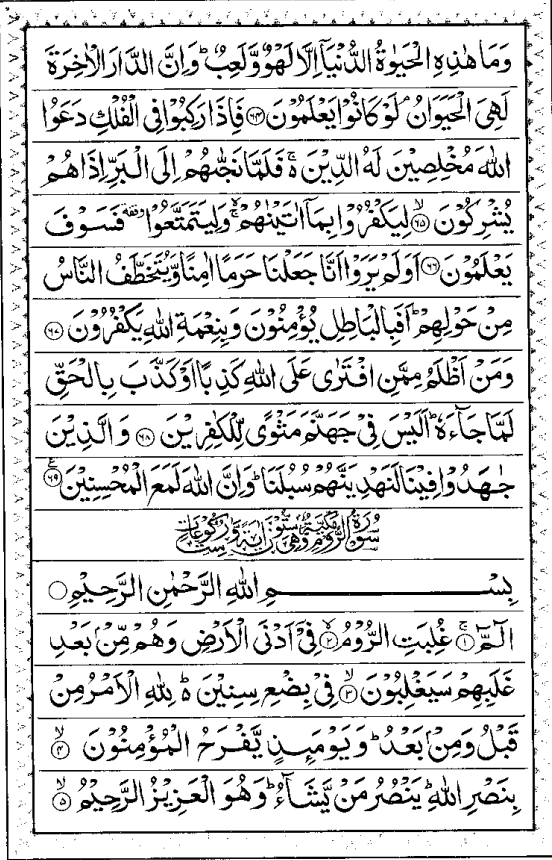 وَمَا هٰذِهِ الْحَيٰوةُ الدُّنْيَآ اِلَّا لَهْوٌ وَّلَعِبٌ ؕ وَاِنَّ الدَّارَ الْاٰخِرَةَ
لَهِىَ الْحَيَوَانُ ۘ لَوْ كَانُوْا يَعْلَمُوْنَ ﴿۶۴﴾ فَاِذَا رَكِبُوْا فِى الْفُلْكِ دَعَوُا
اللّٰهَ مُخْلِصِيْنَ لَهُ الدِّيْنَ ۚ۬ فَلَمَّا نَجّٰىهُمْ اِلَى الْبَرِّ اِذَا هُمْ
يُشْرِكُوْنَ ﴿۶۵﴾ۙ لِيَكْفُرُوْا بِمَاۤ اٰتَيْنٰهُمْ ۚۙ وَلِيَتَمَتَّعُوْا ٝ فَسَوْفَ
يَعْلَمُوْنَ ﴿۶۶﴾ اَوَلَمْ يَرَوْا اَنَّا جَعَلْنَا حَرَمًا اٰمِنًا وَّيُتَخَطَّفُ النَّاسُ
مِنْ حَوْلِهِمْ ؕ اَفَبِالْبَاطِلِ يُؤْمِنُوْنَ وَبِنِعْمَةِ اللّٰهِ يَكْفُرُوْنَ ﴿۶۷﴾
وَمَنْ اَظْلَمُ مِمَّنِ افْتَرٰى عَلَى اللّٰهِ كَذِبًا اَوْ كَذَّبَ بِالْحَقِّ
لَمَّا جَآءَهٗ ؕ اَلَيْسَ فِىْ جَهَنَّمَ مَثْوًى لِّلْكٰفِرِيْنَ ﴿۶۸﴾ وَالَّذِيْنَ
جٰهَدُوْا فِيْنَا لَنَهْدِيَنَّهُمْ سُبُلَنَا ؕ وَاِنَّ اللّٰهَ لَمَعَ الْمُحْسِنِيْنَ ﴿۶۹﴾ ع
سُوْرَةُ الرُّوْمِ مَكِّيَّةٌ وَّهِىَ سِتُّوْنَ اٰيَةً وَّسِتُّ رُكُوْعَاتٍ
بِسْمِ اللّٰهِ الرَّحْمٰنِ الرَّحِيْمِ
الٓمّٓ ﴿۱﴾ۚ غُلِبَتِ الرُّوْمُ ﴿۲﴾ۙ فِىْۤ اَدْنَى الْاَرْضِ وَهُمْ مِّنْۢ بَعْدِ
غَلَبِهِمْ سَيَغْلِبُوْنَ ﴿۳﴾ۙ فِىْ بِضْعِ سِنِيْنَ ۬ؕ لِلّٰهِ الْاَمْرُ مِنْ
قَبْلُ وَمِنْۢ بَعْدُ ؕ وَيَوْمَئِذٍ يَّفْرَحُ الْمُؤْمِنُوْنَ ﴿۴﴾ۙ
بِنَصْرِ اللّٰهِ ؕ يَنْصُرُ مَنْ يَّشَآءُ ؕ وَهُوَ الْعَزِيْزُ الرَّحِيْمُ ﴿۵﴾ۙ